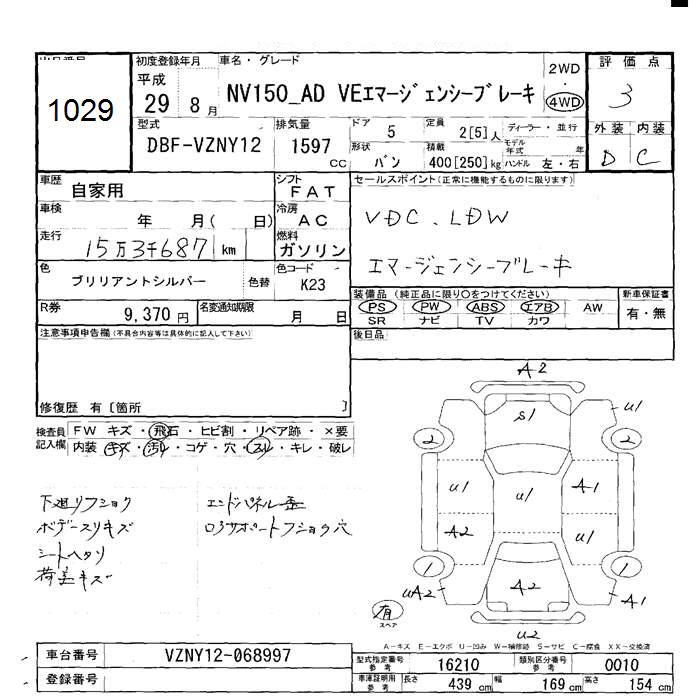 1029
初度登録年月
平成
29年 8月
車名・グレード
NV150_AD VEエマージェンシーブレーキ
2WD
・
4WD
評価点
3
外装 内装
D C
型式
DBF-VZNY12
排気量
1597 cc
ドア
5
形状
バン
定員
2[5]人
積載
400[250]kg
ディーラー・並行
モデル年式 年
ハンドル 左・右
車歴
自家用
シフト
FAT
車検
年 月( 日)
冷房
AC
走行
15万3千687 km
燃料
ガソリン
色
ブリリアントシルバー
色替
色コード
K23
R券
9,370円
名変通知期限
月 日
セールスポイント(正常に機能するものに限ります)
VDC. LDW
エマージェンシーブレーキ
装備品(純正品に限り○をつけてください)
PS PW ABS エアB AW
SR ナビ TV カワ
新車保証書
有・無
後日品
注意事項申告欄(不具合内容等は具体的に記入して下さい)
修復歴 有〔箇所 〕
検査員記入欄
FW キズ・飛石・ヒビ割・リペア跡・×要
内装 キズ・汚れ・コゲ・穴・スレ・キレ・破レ
下廻リフショク
ボデースリキズ
シートヘタリ
荷室キズ
エンドパネル歪
ロアサポートフショク穴
A2
S1
U1
2
2
U1
U1
A1
A2
U1
1
1
UA2
A2
A1
U2
有
スペア
A-キズ E-エクボ U-凹み W-補修跡 S-サビ C-腐食 XX-交換済
車台番号
VZNY12-068997
登録番号
型式指定番号 参考
16210
類別区分番号 参考
0010
車庫証明用 参考
長さ 439cm
幅 169cm
高さ 154cm